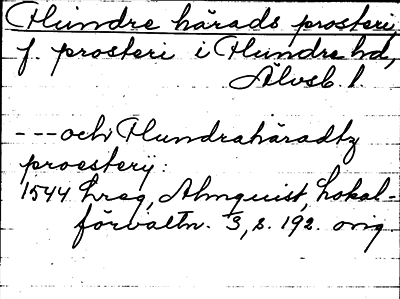 Flundre härads prosteri,
f. prosteri i Flundre hd,
Älvsb. l
---och Flundrahäradtz
proestery:
1544 hreg, Almquist, Lokal-
förvaltn. 3, s. 192. orig.